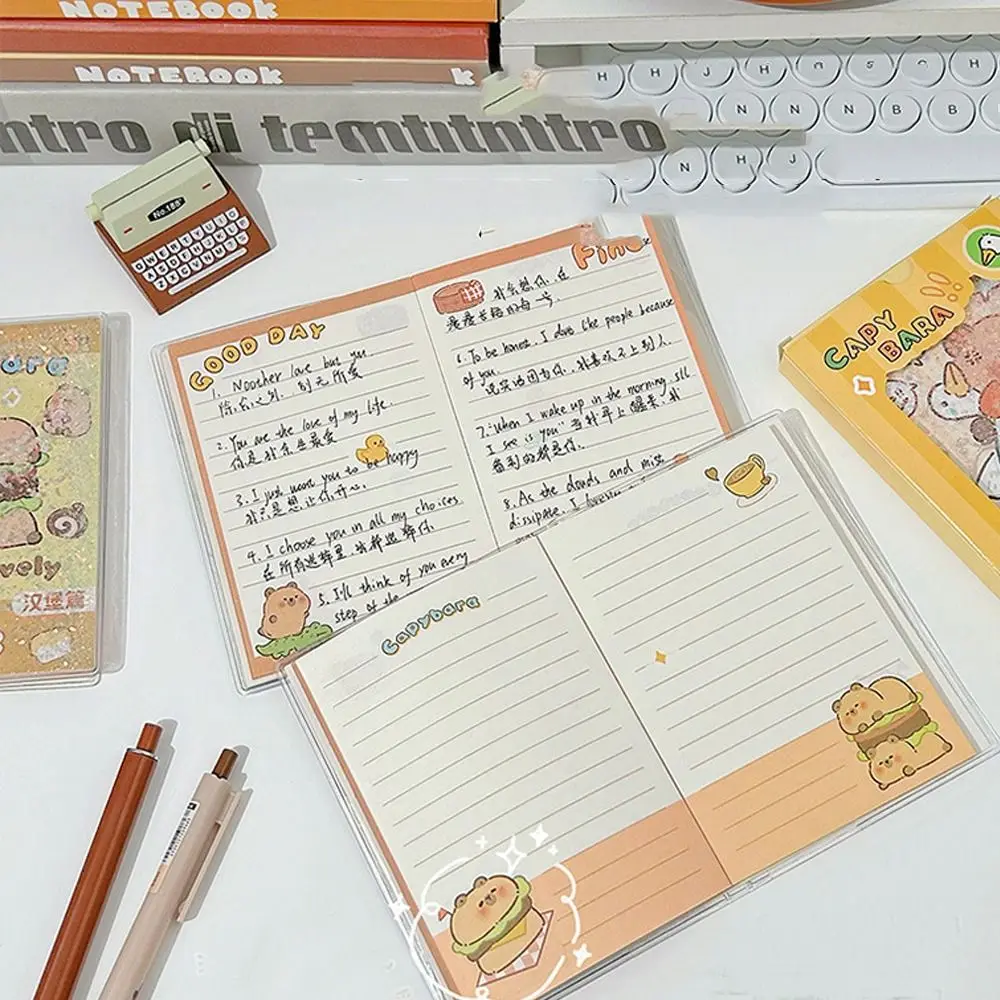 NOTEBOOK
NOTEBOOK K
ntro di temtutnttro
H H J H H H H
N N N B B
N H J
No.188
QWERTYUIO
GOOD DAY
1. Noother love but you
除你之外，别无所爱
2. You are the love of my life
你是我毕生最爱
3. I just want you to be happy
我只是想让你开心.
4. I choose you in all my choices
在所有选择里，我都选择你.
5. I'll think of you every
step of the
Fine
我会想你，在
漫漫长路的每一步.
6. To be honest, I dove like people because
of you.
说实话因为你，我喜欢不上别人.
7. "When I wake up in the morning sll
I see is you" 当我早上醒来，我
看到的都是你.
8. As the clouds and mist
dissipate, I
CAPY
BARA
Capybara
汉堡篇